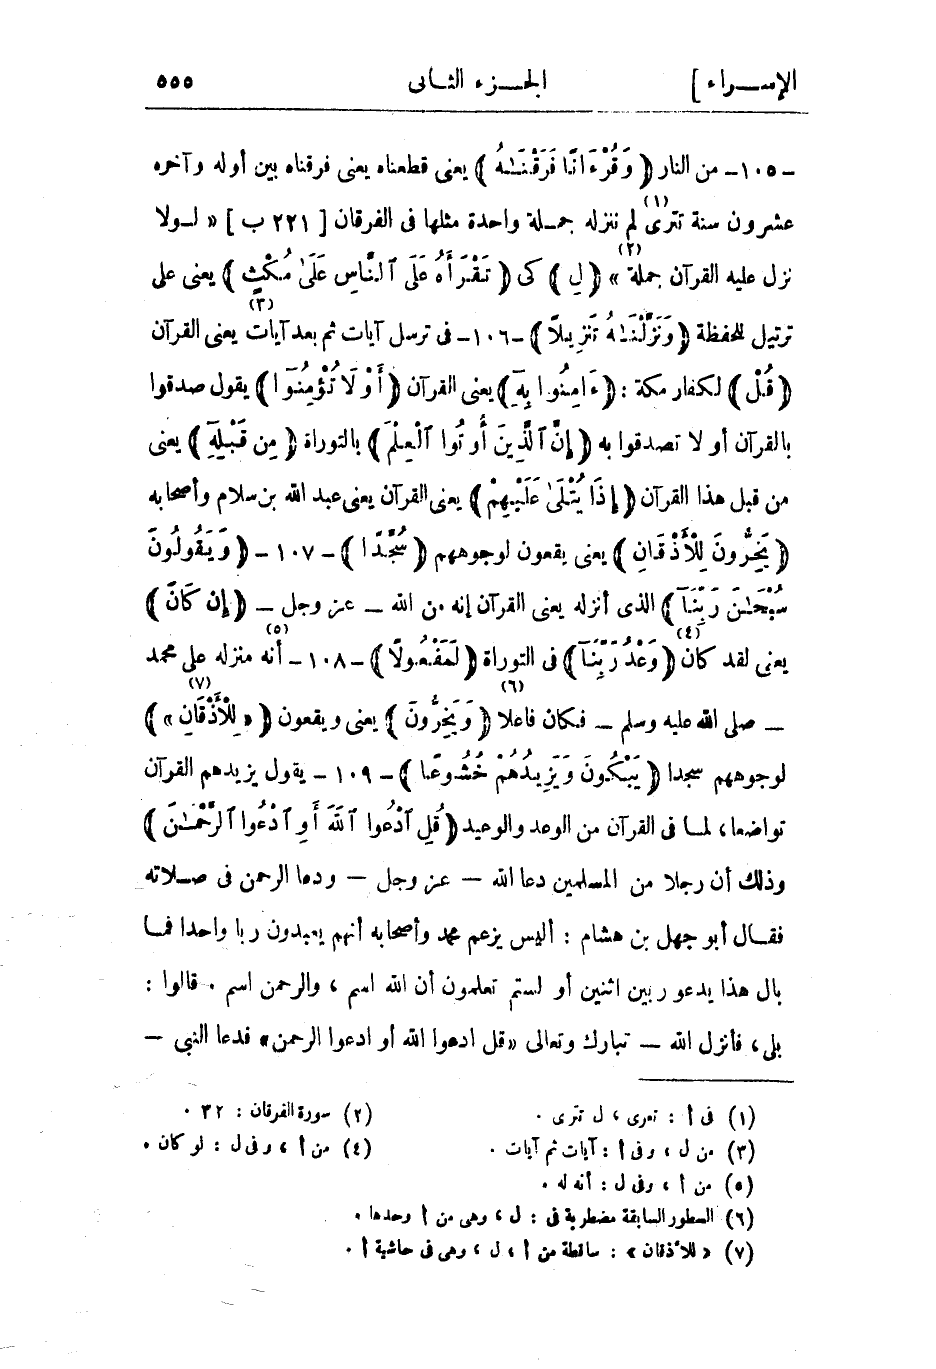 الإســراء ] الجــزء الثـانى ٥٥٥
-١٠٥- من النار ﴿ وَقُرْءَانًا فَرَقْنَـٰهُ ﴾ يعنى قطعناه يعنى فرقناه بين أوله وآخره
عشرون سنة تترى (١) لم ننزله جمـلة واحدة مثلها فى الفرقان [ ٢٢١ ب ] « لـولا
نزل عليه القرآن جملة (٢) » ﴿ لِ ﴾ كى ﴿ تَقْرَأَهُ عَلَى ٱلنَّاسِ عَلَىٰ مُكْثٍ ﴾ يعنى على
ترتيل للحفظة ﴿ وَنَزَّلْنَـٰهُ تَنزِيلًا ﴾ -١٠٦- فى ترسل آيات ثم بعد آيات (٣) يعنى القرآن
﴿ قُلْ ﴾ لكفار مكة : ﴿ ءَامِنُوا بِهِ ﴾ يعنى القرآن ﴿ أَوْ لَا تُؤْمِنُوٓا ﴾ يقول صدقوا
بالقرآن أو لا تصدقوا به ﴿ إِنَّ ٱلَّذِينَ أُوتُوا ٱلْعِلْمَ ﴾ بالتوراة ﴿ مِن قَبْلِهِ ﴾ يعنى
من قبل هذا القرآن ﴿ إِذَا يُتْلَىٰ عَلَيْهِمْ ﴾ يعنى القرآن يعنى عبد الله بن سلام وأصحابه
﴿ يَخِرُّونَ لِلْأَذْقَانِ ﴾ يعنى يقعون لوجوههم ﴿ سُجَّدًا ﴾ - ١٠٧ - ﴿ وَيَقُولُونَ
سُبْحَـٰنَ رَبِّنَآ ﴾ الذى أنزله يعنى القرآن إنه من الله — عز وجل — ﴿ إِن كَانَ ﴾
يعنى لقد كان (٤) ﴿ وَعْدُ رَبِّنَآ ﴾ فى التوراة ﴿ لَمَفْعُولًا ﴾ -١٠٨- أنه (٥) منزله على محمد
— صلى الله عليه وسلم — فكان فاعلا (٦) ﴿ وَيَخِرُّونَ ﴾ يعنى ويقعون ﴿ « لِلْأَذْقَانِ (٧) » ﴾
لوجوههم سجدا ﴿ يَبْكُونَ وَيَزِيدُهُمْ خُشُوعًا ﴾ - ١٠٩ - يقول يزيدهم القرآن
تواضعا ، لمـا فى القرآن من الوعد والوعيد ﴿ قُلِ ٱدْعُوا ٱللَّهَ أَوِ ٱدْعُوا ٱلرَّحْمَـٰنَ ﴾
وذلك أن رجلا من المسلمين دعا الله — عز وجل — ودعا الرحمن فى صـلاته
فقـال أبو جهل بن هشام : أليس يزعم محمد وأصحابه أنهم يعبدون ربا واحدا فمـا
بال هذا يدعو ربين اثنين أو لستم تعلمون أن الله اسم ، والرحمن اسم . قالوا :
بلى ، فأنزل الله — تبارك وتعالى «قل ادعوا الله أو ادعوا الرحمن» فدعا النبى —
(١) فى أ : تترى ، ل تترى . (٢) سورة الفرقان : ٣٢ .
(٣) من ل ، وفى أ : آيات ثم آيات . (٤) من أ ، وفى ل : لو كان .
(٥) من أ ، وفى ل : أنه له .
(٦) السطور السابقة مضطربة فى : ل ، وهى من أ وحدها .
(٧) « للأذقان » : ساقطة من أ ، ل ، وهى فى حاشية أ .